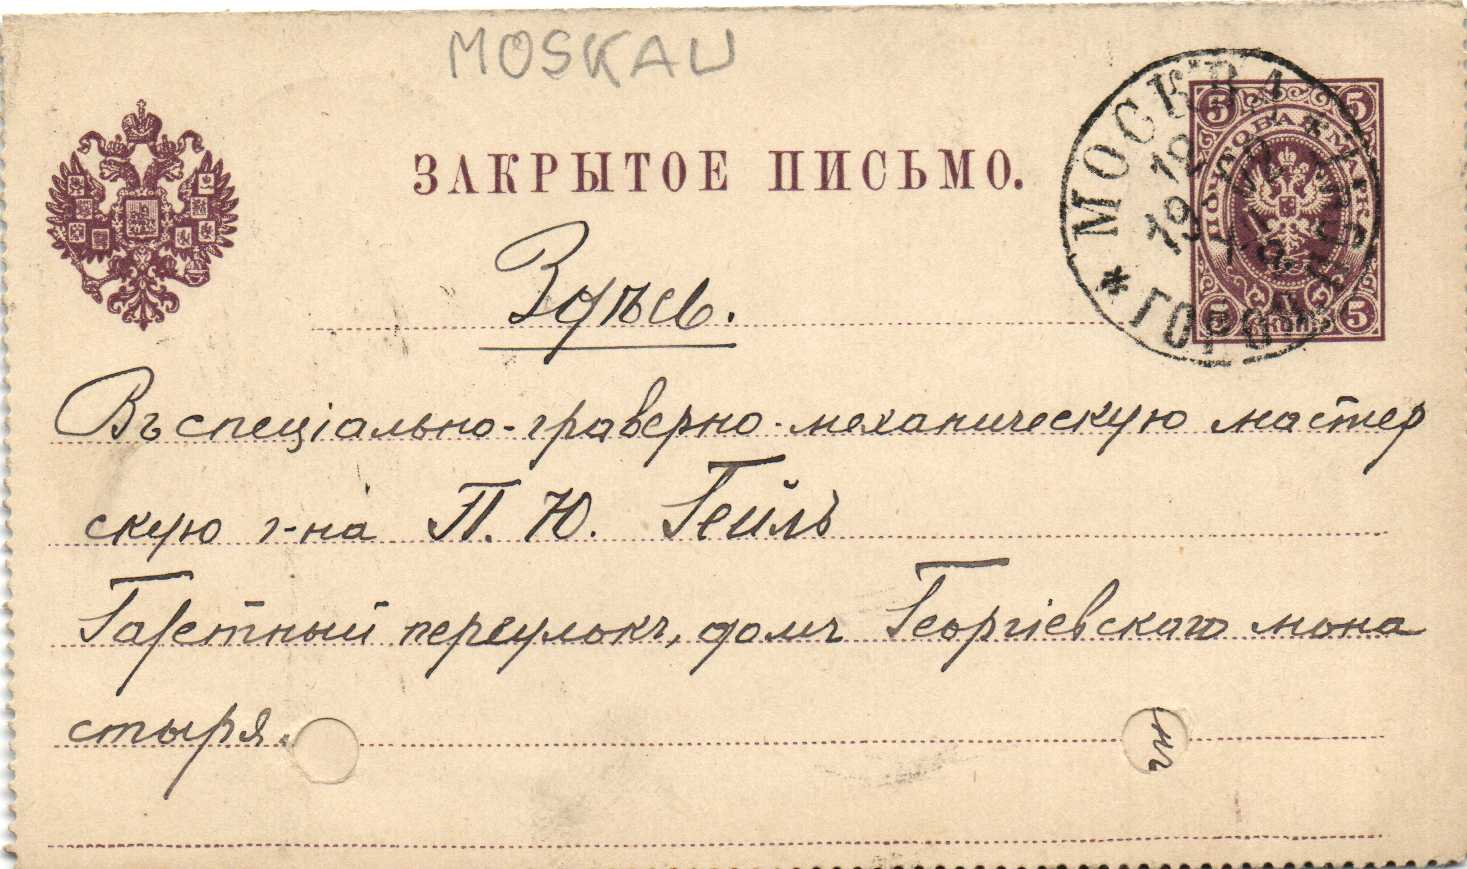 MOSKAU
ЗАКРЫТОЕ ПИСЬМО.
МОСКВА
19
ПОЧТОВАЯ МАРКА
5 5
5 5
Здѣсь.
Въ спеціально-граверно-механическую мастер
скую г-на П. Ю. Гейль
Газетный переулокъ, домъ Георгіевскаго мона
стыря.